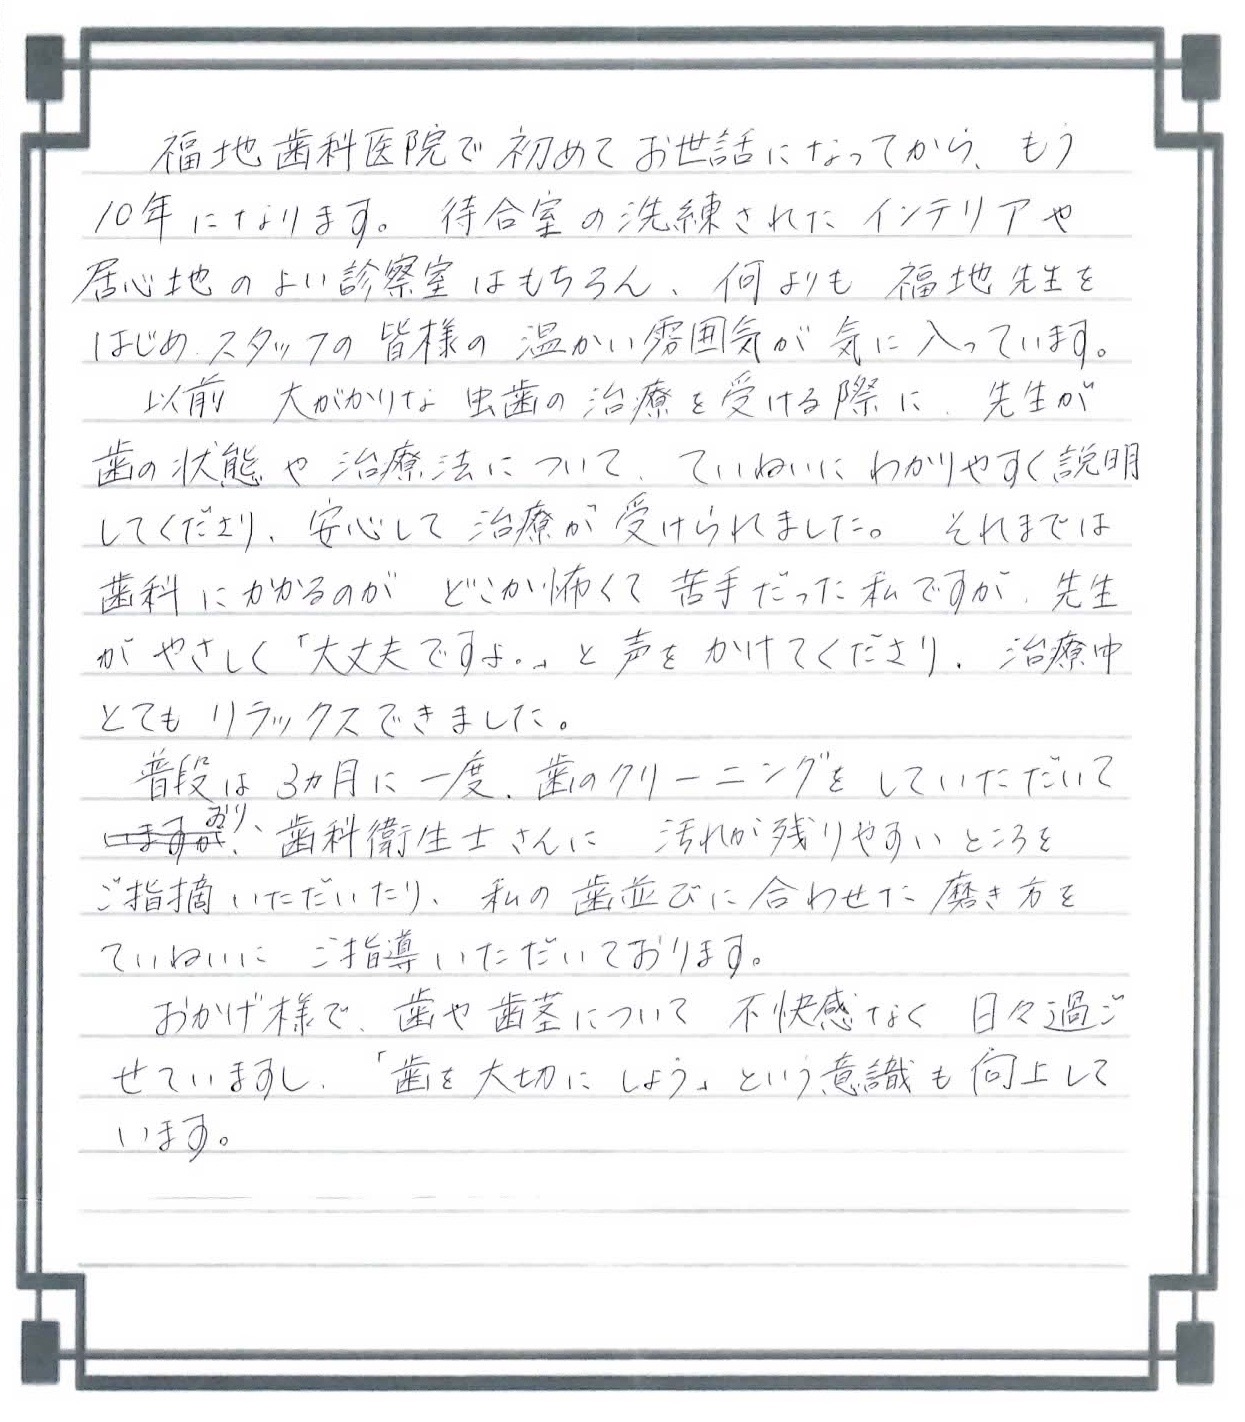 福地歯科医院で初めてお世話になってから、もう
10年になります。待合室の洗練されたインテリアや
居心地のよい診察室はもちろん、何よりも福地先生を
はじめ、スタッフの皆様の温かい雰囲気が気に入っています。
以前 大がかりな虫歯の治療を受ける際に、先生が
歯の状態や治療法について、ていねいにわかりやすく説明
してくださり、安心して治療が受けられました。それまでは
歯科にかかるのがどこか怖くて苦手だった私ですが、先生
がやさしく「大丈夫ですよ。」と声をかけてくださり、治療中
とてもリラックスできました。
普段は3ヵ月に一度、歯のクリーニングをしていただいて
おり、歯科衛生士さんに汚れが残りやすいところを
ご指摘いただいたり、私の歯並びに合わせた磨き方を
ていねいにご指導いただいております。
おかげ様で、歯や歯茎について不快感なく日々過ご
せていますし、「歯を大切にしよう」という意識も向上して
います。